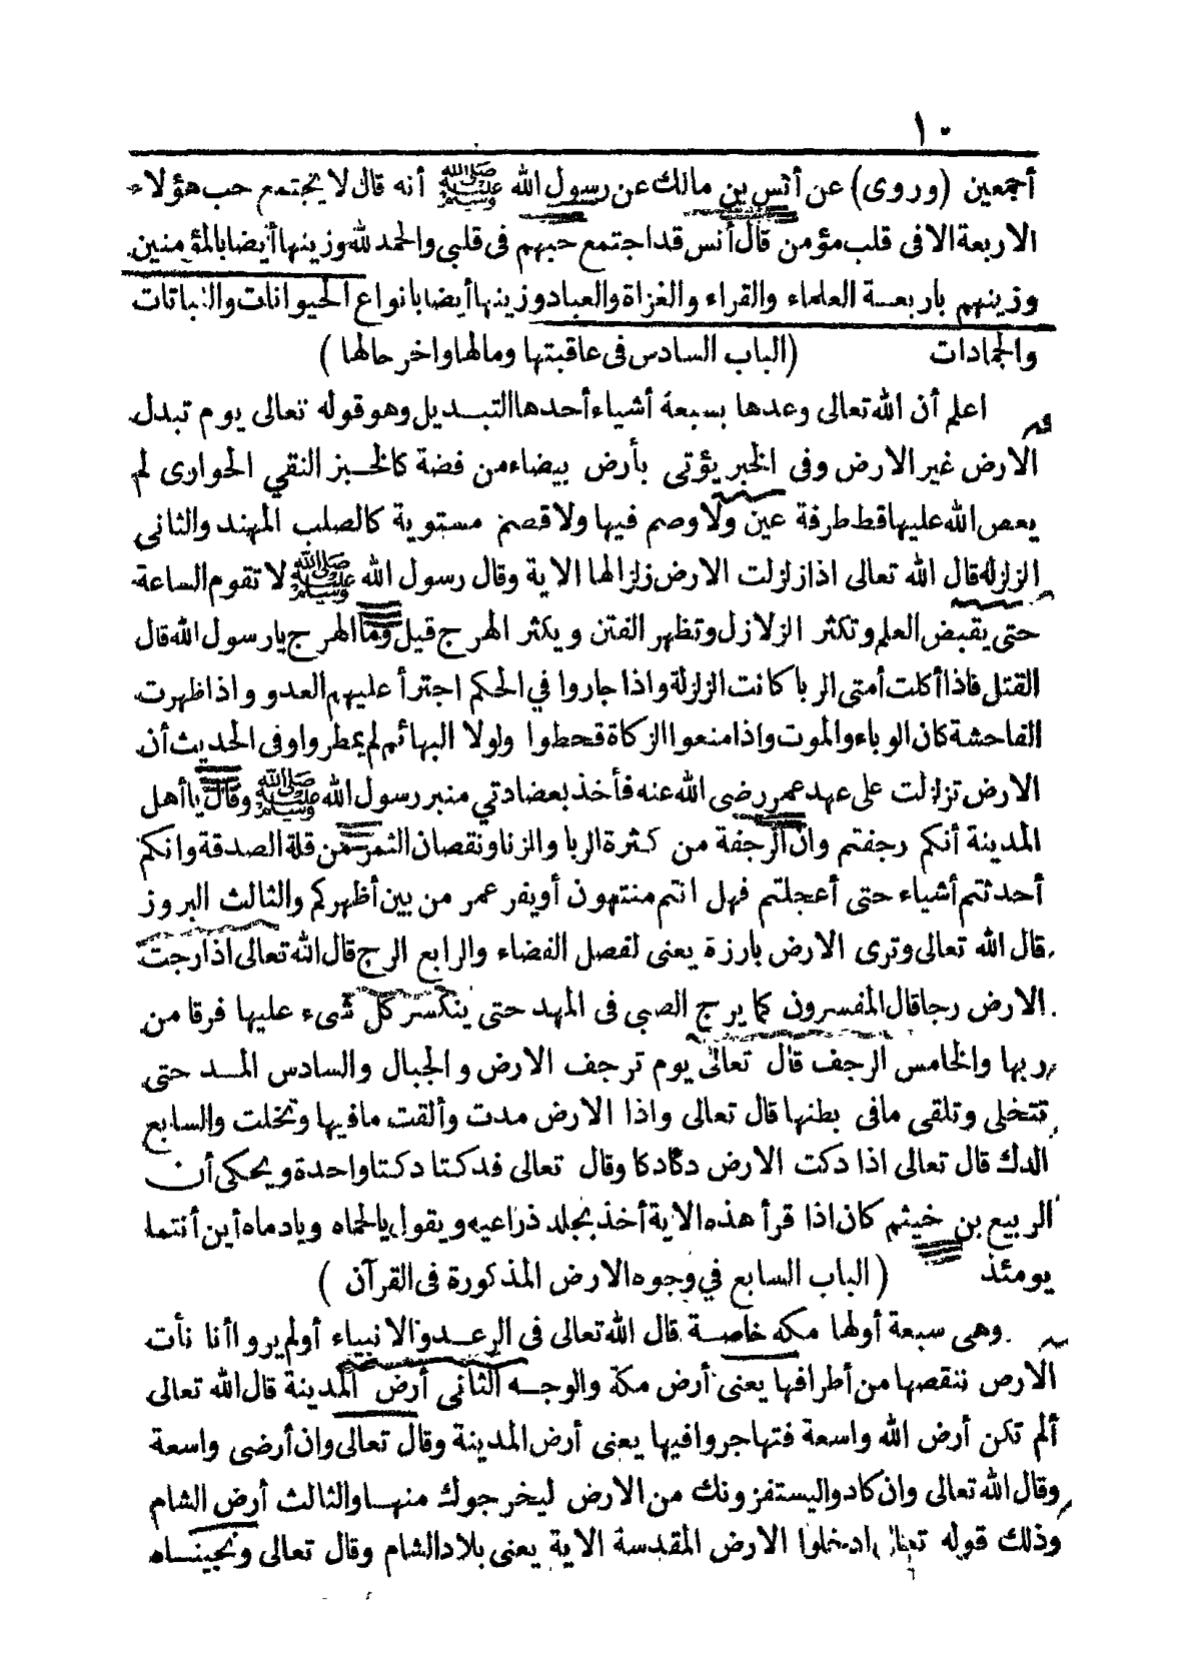 ١٠
أجمعين (وروى) عن أنس بن مالك عن رسول الله ﷺ أنه قال لا يجتمع حب هؤلاء
الاربعة الا فى قلب مؤمن قال أنس قد اجتمع حبهم فى قلبى والحمد لله وزينها أيضا بالمؤمنين
وزينهم باربعة العلماء والقراء والغزاة والعباد وزينها أيضا بانواع الحيوانات والنباتات
والجمادات (الباب السادس فى عاقبتها ومالها واخر حالها)
اعلم أن الله تعالى وعدها بسبعة أشياء أحدها التبديل وهو قوله تعالى يوم تبدل
الارض غير الارض وفى الخبر يؤتى بأرض بيضاء من فضة كالخبز النقي الحوارى لم
يعص الله عليها قط طرفة عين ولا وصم فيها ولا قصم مستوية كالصلب المهند والثانى
الزلزلة قال الله تعالى اذا زلزلت الارض زلزالها الاية وقال رسول الله ﷺ لا تقوم الساعة
حتى يقبض العلم وتكثر الزلازل وتظهر الفتن ويكثر الهرج قيل وما الهرج يا رسول الله قال
القتل فاذا أكلت أمتى الربا كانت الزلزلة واذا جاروا في الحكم اجترأ عليهم العدو واذا ظهرت
الفاحشة كان الوباء والموت واذا منعوا الزكاة قحطوا ولولا البهائم لم يمطروا وفى الحديث أن
الارض تزلزلت على عهد عمر رضى الله عنه فأخذ بعضادتي منبر رسول الله ﷺ وقال يا أهل
المدينة أنكم رجفتم وان الرجفة من كثرة الربا والزنا ونقصان الثمر من قلة الصدقة وانكم
أحدثتم أشياء حتى أعجلتم فهل انتم منتهون أو يفر عمر من بين أظهركم والثالث البروز
قال الله تعالى وترى الارض بارزة يعنى لفصل القضاء والرابع الرج قال الله تعالى اذا رجت
الارض رجا قال المفسرون كما يرج الصبى فى المهد حتى ينكسر كل شىء عليها فرقا من
ربها والخامس الرجف قال تعالى يوم ترجف الارض والجبال والسادس المد حتى
تتخلى وتلقى مافى بطنها قال تعالى واذا الارض مدت وألقت مافيها وتخلت والسابع
الدك قال تعالى اذا دكت الارض دكادكا وقال تعالى فدكتا دكتا واحدة ويحكى أن
الربيع بن خيثم كان اذا قرأ هذه الاية أخذ بجلد ذراعيه ويقول يالحماه ويادماه أين أنتما
يومئذ (الباب السابع في وجوه الارض المذكورة فى القرآن)
وهى سبعة أولها مكه خاصة قال الله تعالى فى الرعد والانبياء أولم يروا أنا نأت
الارض ننقصها من أطرافها يعنى أرض مكة والوجه الثانى أرض المدينة قال الله تعالى
ألم تكن أرض الله واسعة فتهاجروا فيها يعنى أرض المدينة وقال تعالى وان أرضى واسعة
وقال الله تعالى وان كادوا ليستفزونك من الارض ليخرجوك منها والثالث أرض الشام
وذلك قوله تعالى ادخلوا الارض المقدسة الاية يعنى بلاد الشام وقال تعالى ونجيناه